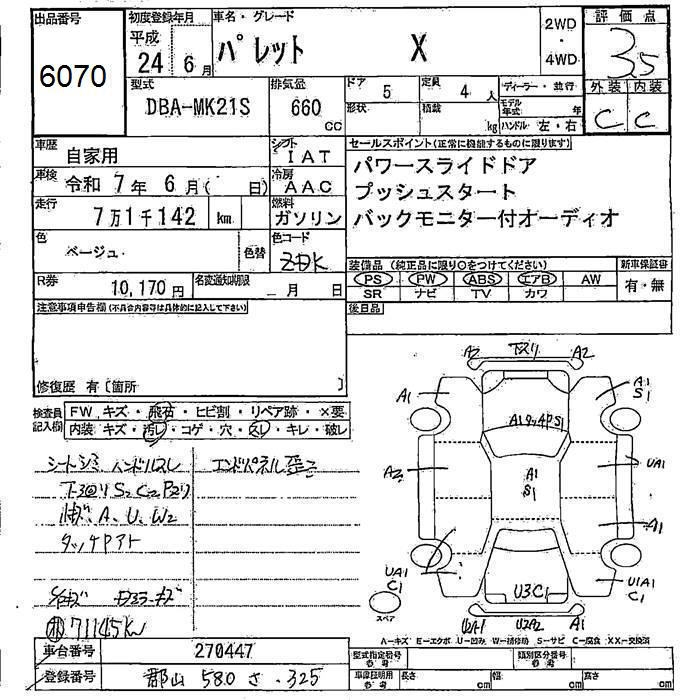 出品番号 6070
初度登録年月 平成 24年 6月
車名・グレード パレット X
2WD・4WD
評価点 3.5
外装 C 内装 C
型式 DBA-MK21S
排気量 660 cc
ドア 5 定員 4 人
形状 積載 kg
ディーラー・並行
モデル年式 年
ハンドル 左・右
車歴 自家用
シフト IAT
車検 令和 7年 6月( 日)
冷房 AAC
走行 7万1千142 km
燃料 ガソリン
色 ベージュ 色替
色コード ZDK
R券 10,170円
名変通知期限 月 日
セールスポイント(正常に機能するものに限ります)
パワースライドドア
プッシュスタート
バックモニター付オーディオ
装備品(純正品に限り○をつけてください) 新車保証書
PS PW ABS エアB AW 有・無
SR ナビ TV カワ
後日品
注意事項申告欄(不具合内容等は具体的に記入して下さい)
修復歴 有〔箇所 〕
検査員記入欄
FW キズ・飛石・ヒビ割・リペア跡・×要
内装 キズ・汚レ・コゲ・穴・スレ・キレ・破レ
シートシミ ハンドルスレ エンドパネル歪
A、U、W2
タッチアト
71145km
A2 下スリ A2
A1 A1 S1
A1タッチP S1
A2 A1 S1 UA1
A1
UA1 C1 U3C1 U1A1 C1
スペア
U2A2 A1
A-キズ E-エクボ U-凹み W-補修跡 S-サビ C-腐食 XX-交換済
車台番号 270447
登録番号 郡山 580 さ ・325
型式指定番号 参考 類別区分番号 参考
車庫証明用 参考 長さ cm 幅 cm 高さ cm